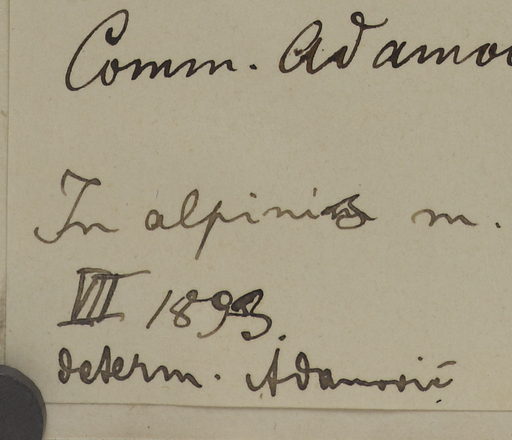 Comm. Adamov
In alpinis m.
VII 1893.
determ. Adamović